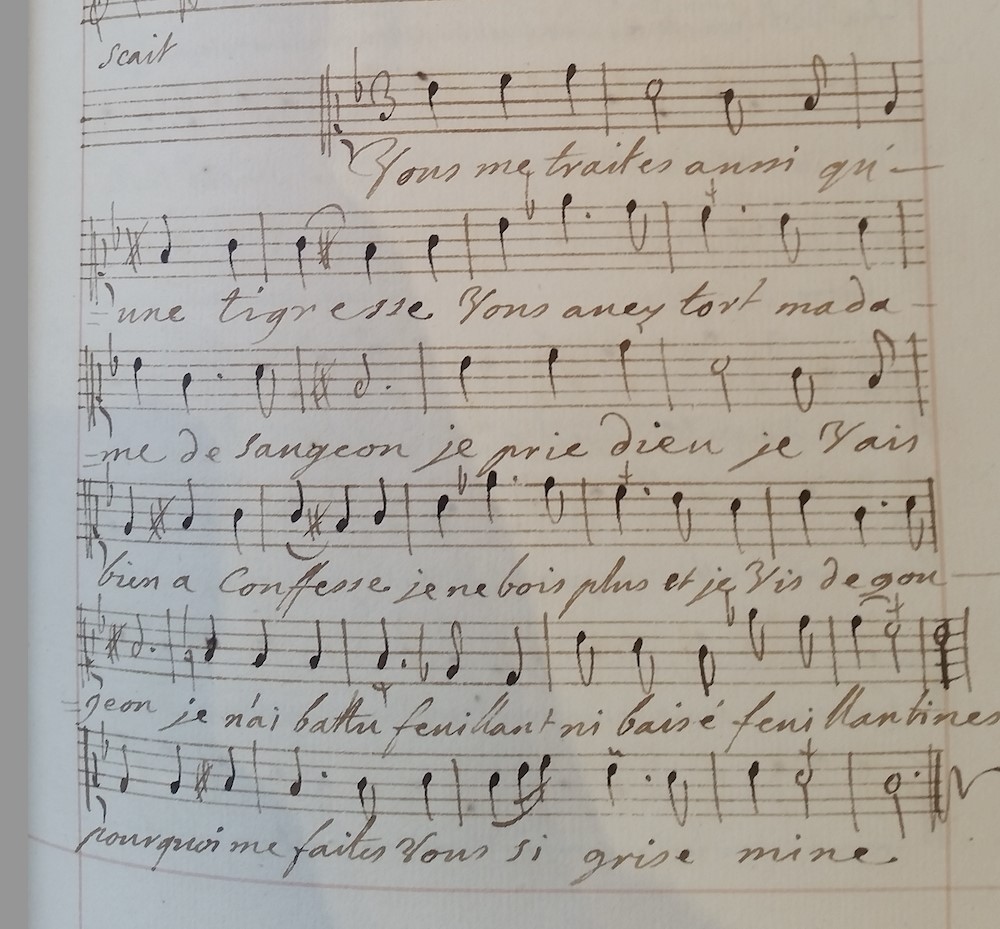 scait
Vous me traites aussi qu'
une tigresse Vous avez tort mada
me de Saugeon je prie dieu je Vais
bien a Conffesse je ne bois plus et je Vis de gou
jeon je n'ai battu feuillant ni baisé feuillantines
pourquoi me faites Vous si grise mine